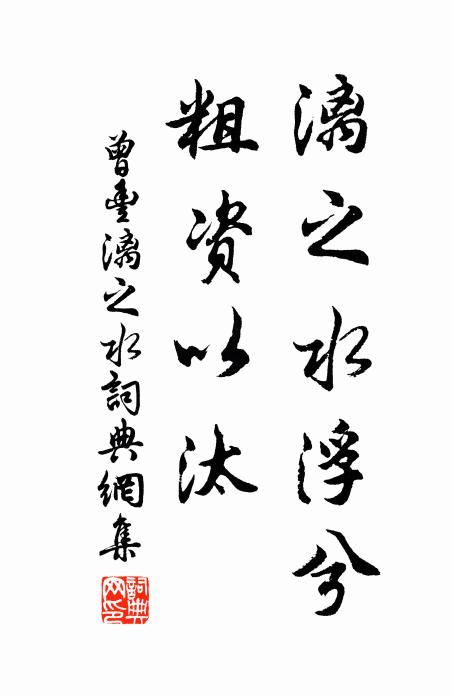 漓之水浮兮
粗资以汰
曾豊漓之水詞典網集
詞典网印